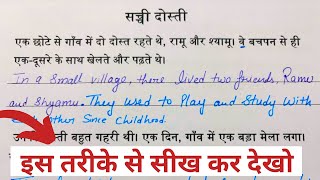 सच्ची दोस्ती
एक छोटे से गाँव में दो दोस्त रहते थे, रामू और श्यामू। वे बचपन से ही
एक-दूसरे के साथ खेलते और पढ़ते थे।
In a small village, there lived two friends, Ramu
and Shyamu. They used to Play and Study With
other Since Childhood.
दोस्ती बहुत गहरी थी। एक दिन, गाँव में एक बड़ा मेला लगा।
इस तरीके से सीख कर देखो